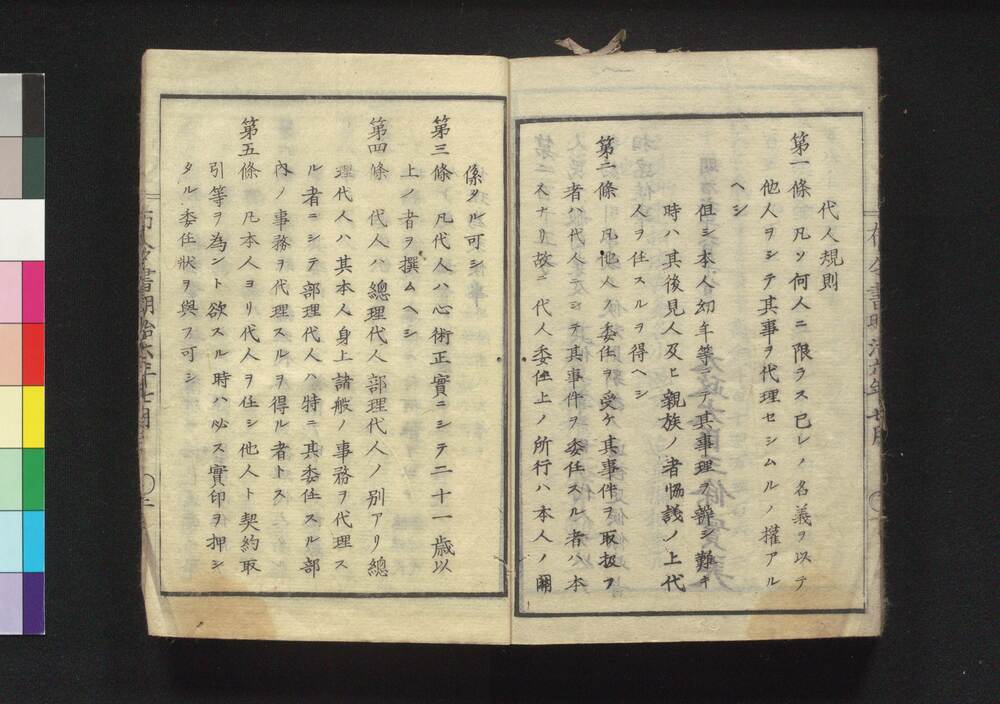 代人規則
第一條　凡ソ何人ニ限ラス已レノ名義ヲ以テ
他人ヲシテ其事ヲ代理セシムルノ權アル
ヘシ
但シ本人幼年等ニテ其事理ヲ辨シ難キ
時ハ其後見人及ヒ親族ノ者協議ノ上代
人ヲ任スルヲ得ヘシ
第二條　凡他人ノ委任ヲ受ケ其事件ヲ取扱フ
者ハ代人ニシテ其事件ヲ委任スル者ハ本
人ナリ故ニ代人委任上ノ所行ハ本人ノ關
係タル可シ
第三條　凡代人ハ心術正實ニシテ二十一歳以
上ノ者ヲ撰ムヘシ
第四條　代人ハ總理代人部理代人ノ別アリ總
理代人ハ其本人身上諸般ノ事務ヲ代理ス
ル者ニシテ部理代人ハ特ニ其委任スル部
內ノ事務ヲ代理スルヲ得ル者トス
第五條　凡本人ヨリ代人ヲ任シ他人ト契約取
引等ヲ為ント欲スル時ハ必ス實印ヲ押シ
タル委任狀ヲ與フ可シ